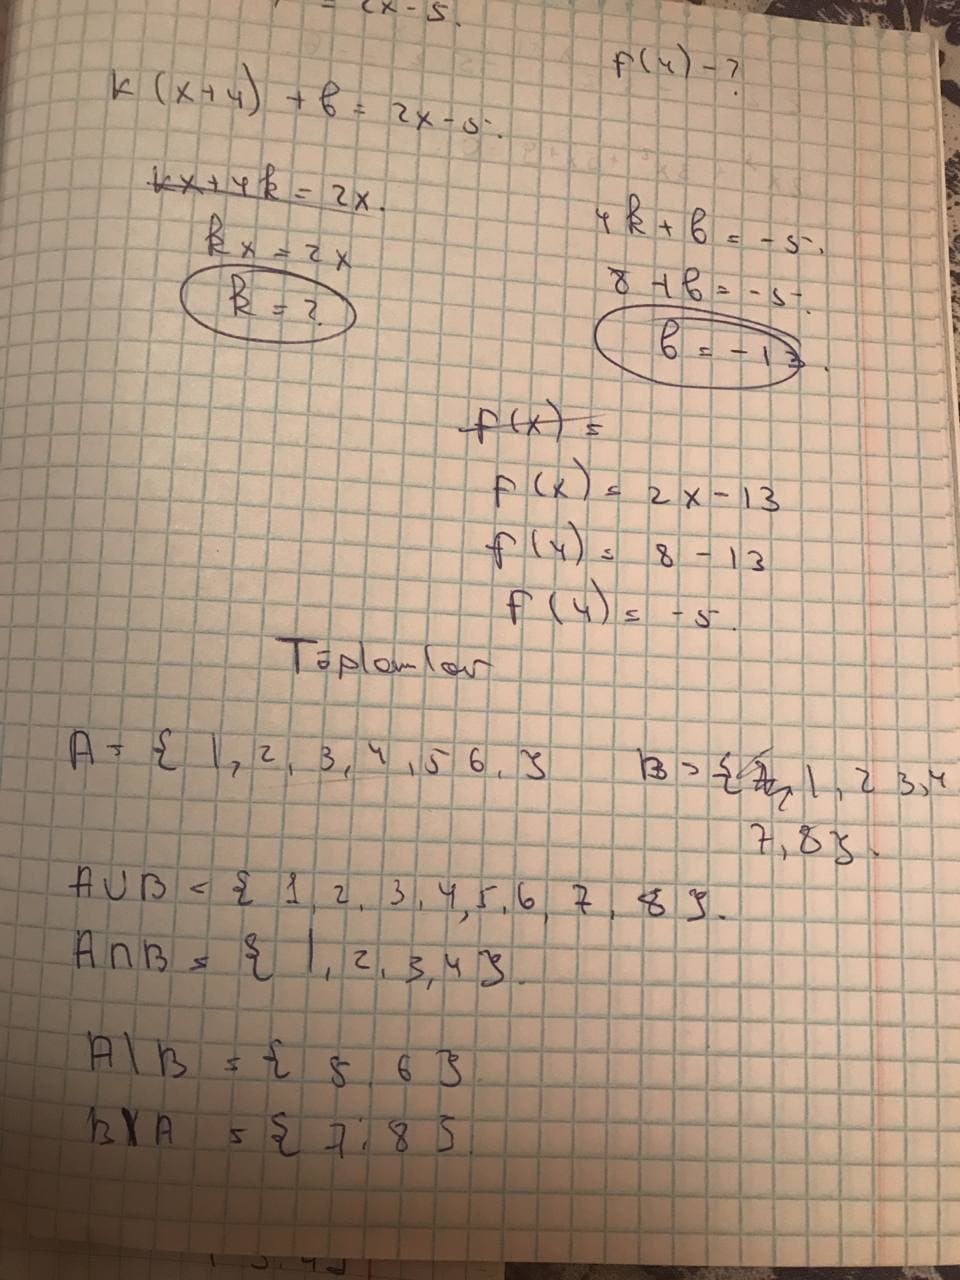 = 2x-5.
f(4)-?
k(x+4)+b=2x-5.
kx+4k=2x.
kx=2x
k=2.
4k+b=-5.
8+b=-5.
b=-13.
f(x)=
f(x)=2x-13
f(4)=8-13
f(4)=-5.
Töplamlar
A={1,2,3,4,5 6.} B={1,2 3,4
7,8}.
A∪B={1,2,3,4,5,6,7,8}.
A∩B={1,2,3,4}.
A\B={5,6}
B\A={7,8}